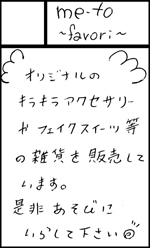 me-to
~favori~
オリジナルの
キラキラアクセサリー
やフェイクスイーツ等
の雑貨を販売して
います。
是非あそびに
いらして下さい